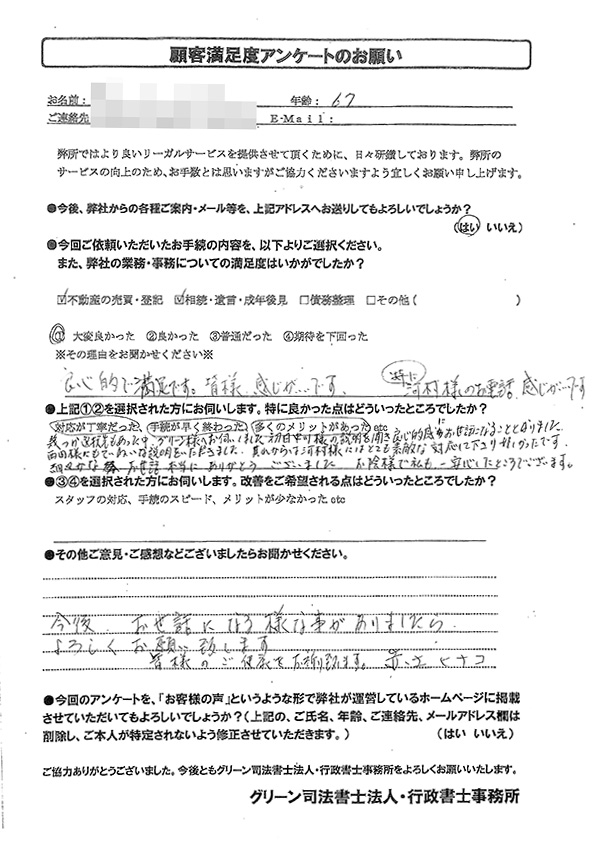 顧客満足度アンケートのお願い
お名前: 年齢: 67
ご連絡先 E-Mail:
弊所ではより良いリーガルサービスを提供させて頂くために、日々研鑽しております。弊所の
サービスの向上のため、お手数とは思いますがご協力くださいますよう宜しくお願い申し上げます。
●今後、弊社からの各種ご案内・メール等を、上記アドレスへお送りしてもよろしいでしょうか?
(はい いいえ)
●今回ご依頼いただいたお手続の内容を、以下よりご選択ください。
また、弊社の業務・事務についての満足度はいかがでしたか?
☑不動産の売買・登記 ☑相続・遺言・成年後見 □債務整理 □その他( )
① 大変良かった ②良かった ③普通だった ④期待を下回った
※その理由をお聞かせください※
良心的で満足です。皆様、感じが…です、 特に 河村様のお電話、感じが…です
●上記①②を選択された方にお伺いします。特に良かった点はどういったところでしたか?
対応が丁寧だった、手続が早く終わった、多くのメリットがあった etc
お世話本当にありがとうございました お陰様で私も一安心したところでございます。
●③④を選択された方にお伺いします。改善をご希望される点はどういったところでしたか?
スタッフの対応、手続のスピード、メリットが少なかった etc
●その他ご意見・ご感想などございましたらお聞かせください。
今後、お世話になる様な事がありましたら
よろしくお願い致します
皆様のご健康をお祈り致します。
●今回のアンケートを、「お客様の声」というような形で弊社が運営しているホームページに掲載
させていただいてもよろしいでしょうか?(上記の、ご氏名、年齢、ご連絡先、メールアドレス欄は
削除し、ご本人が特定されないよう修正させていただきます。) (はい いいえ)
ご協力ありがとうございました。今後ともグリーン司法書士法人・行政書士事務所をよろしくお願いいたします。
グリーン司法書士法人・行政書士事務所